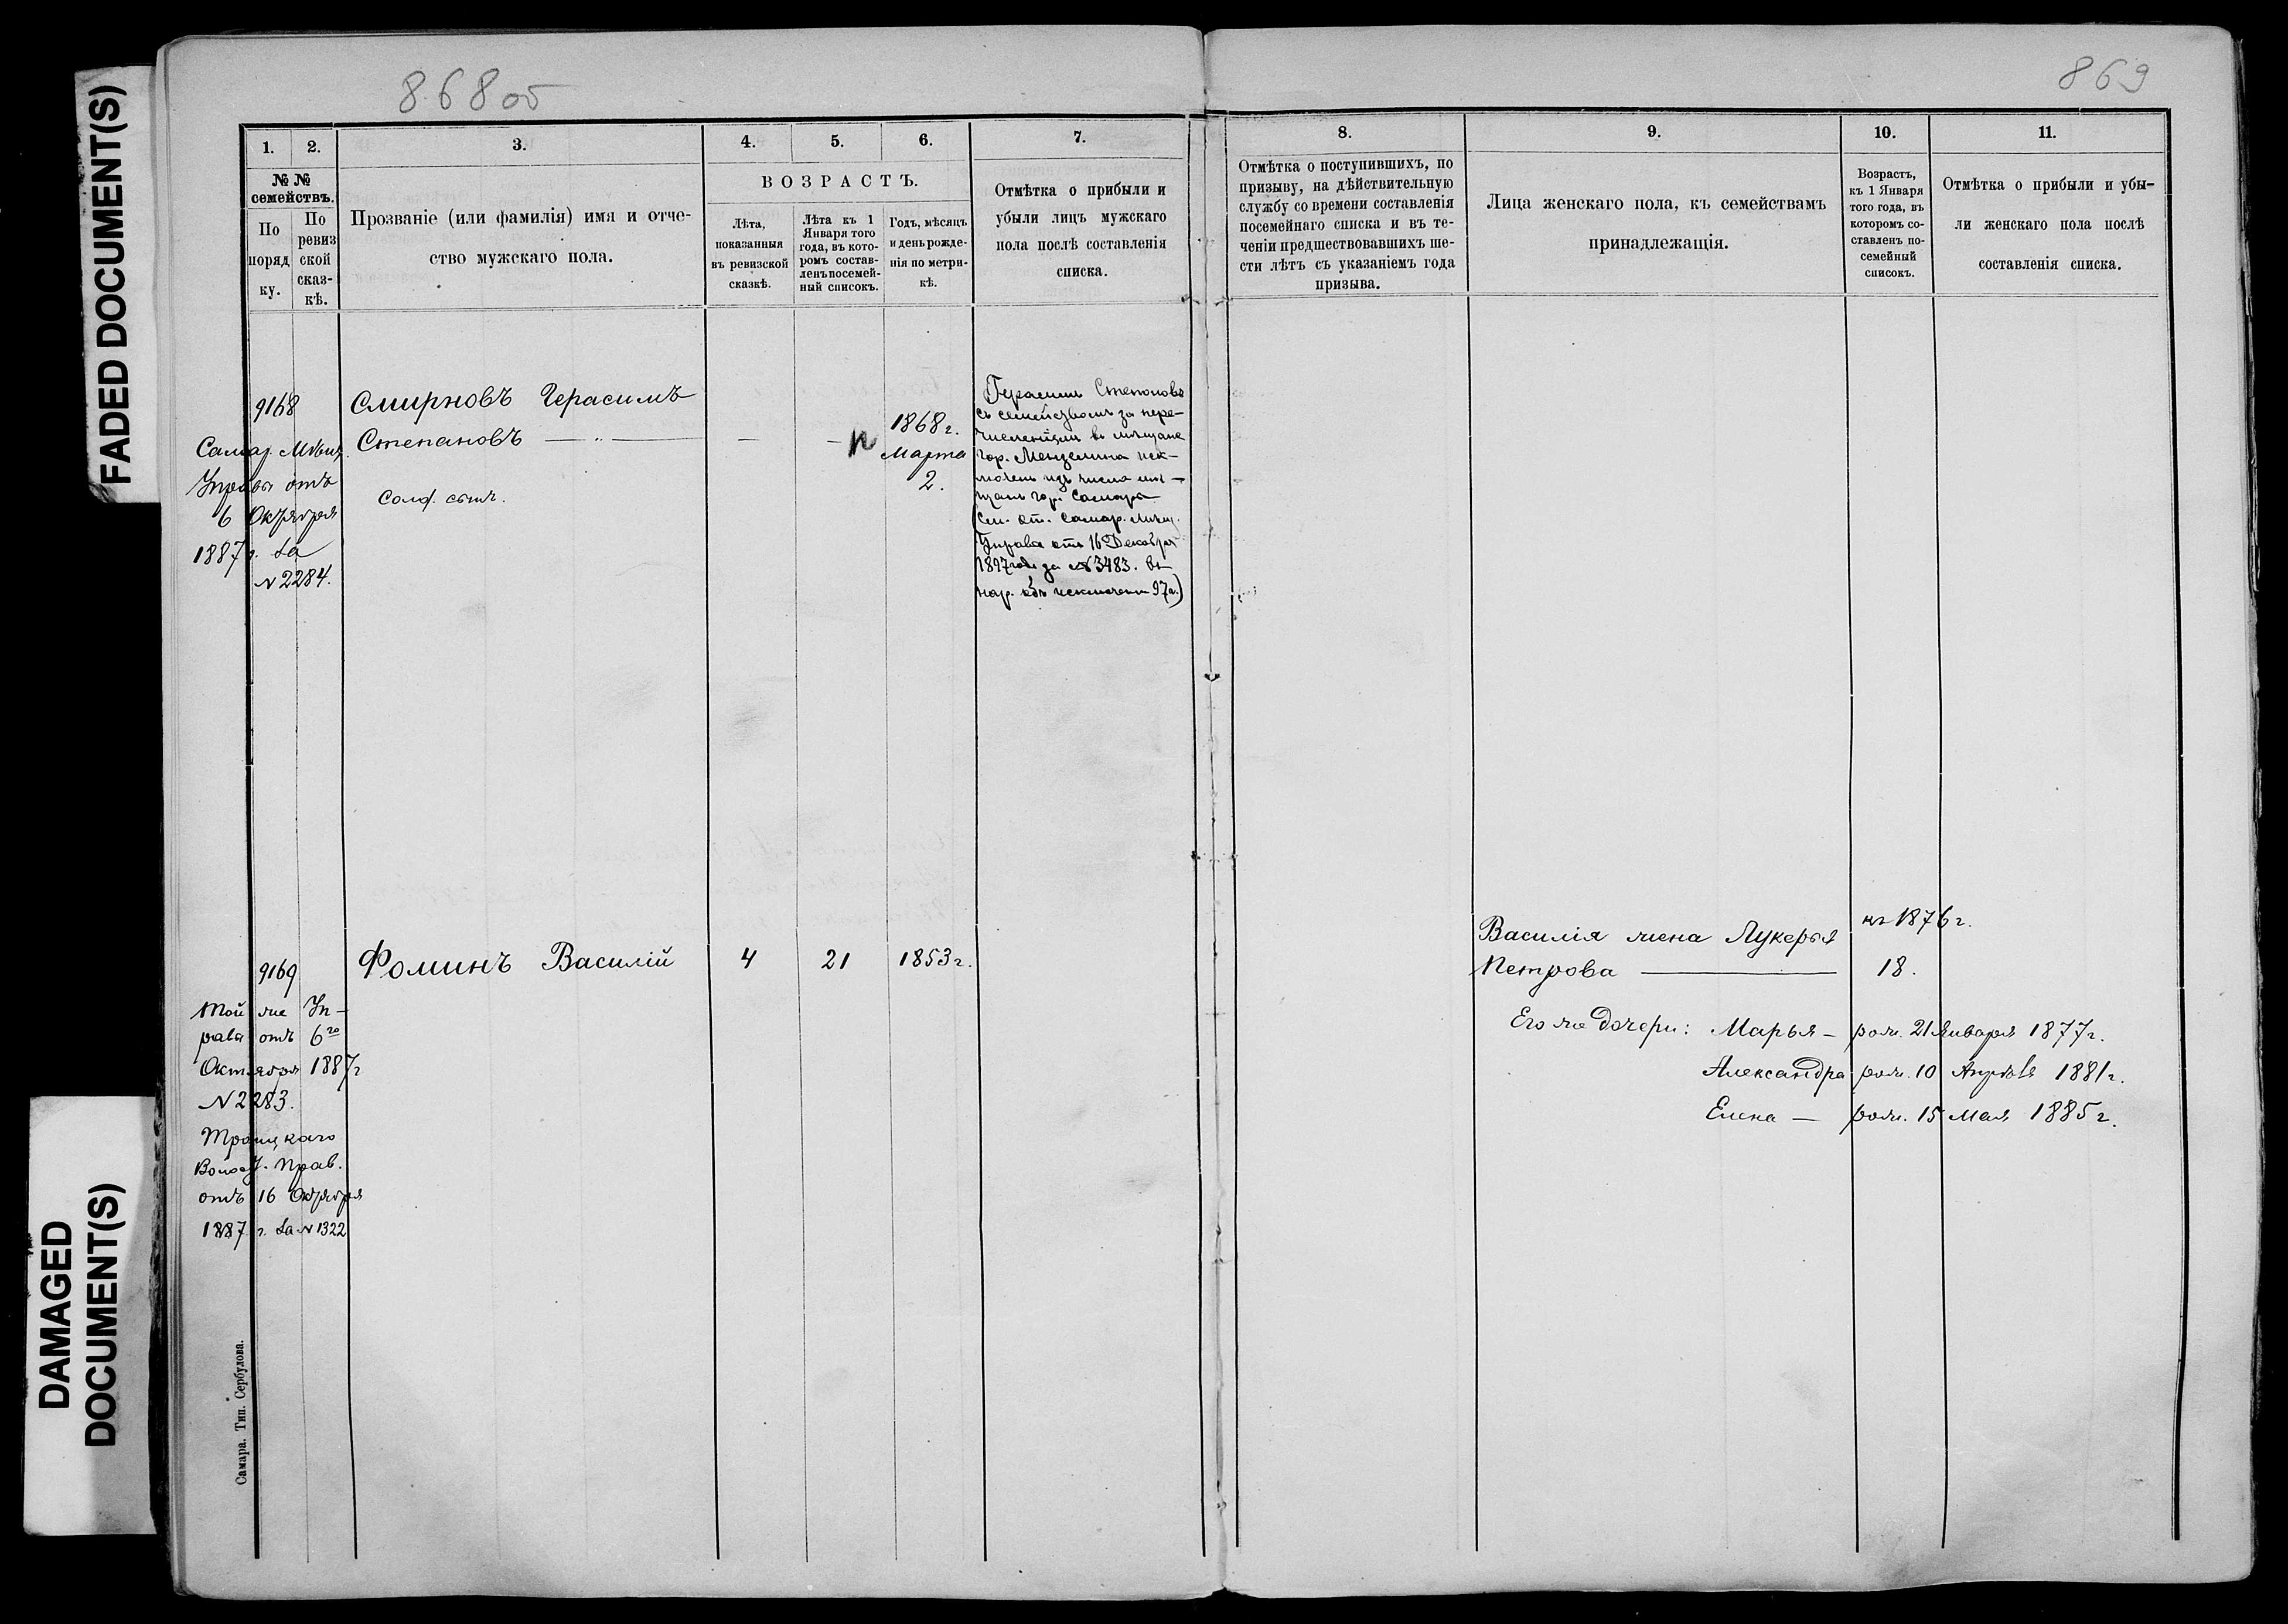 FADED DOCUMENT(S)
DAMAGED
DOCUMENT(S)
868 об
869
1.
2.
3.
4.
5.
6.
7.
№ №
семействъ.
По
поряд
ку.
По
ревиз
ской
сказ-
кѣ.
Прозваніе (или фамилія) имя и отче-
ство мужскаго пола.
ВОЗРАСТЪ.
Лѣта,
показанныя
въ ревизской
сказкѣ.
Лѣта къ 1
Января того
года, въ кото-
ромъ состав-
ленъ посемей-
ный списокъ.
Годъ, мѣсяцъ
и день рожде-
нія по метри-
кѣ.
Отмѣтка о прибыли и
убыли лицъ мужскаго
пола послѣ составленія
списка.
8.
9.
10.
11.
Отмѣтка о поступившихъ, по
призыву, на дѣйствительную
службу со времени составленія
посемейнаго списка и въ те-
ченіи предшествовавшихъ ше-
сти лѣтъ съ указаніемъ года
призыва.
Лица женскаго пола, къ семействамъ
принадлежащія.
Возрастъ,
къ 1 Января
того года, въ
которомъ со-
ставленъ по-
семейный
списокъ.
Отмѣтка о прибыли и убы-
ли женскаго пола послѣ
составленія списка.
9168
Самар. Мѣщ.
Управы отъ
6 Октября
1887 г. за
№ 2284.
Смирновъ Герасимъ
Степановъ — „ — — —
Солд. сынъ.
1868 г.
Марта
2.
Герасимъ Степановъ
съ семействомъ за пере-
численіемъ въ мѣщане
гор. Мензелинска иск-
люченъ изъ числа мѣ-
щанъ гор. Самары
(См. от. Самар. Мѣщ.
Управы отъ 16 Декабря
1897 года за № 3483. въ
нар. объ исключен. 97 г.)
9169
Той же Уп-
равы отъ 6го
Октября 1887 г
№ 2283.
Троицкаго
Волост. Прав.
отъ 16 Октября
1887 г. за № 1322
Фоминъ Василій 4 21 1853 г.
Василія жена Лукерья къ 1876 г.
Петрова — 18.
Его же дочери: Марья — рож. 21 Января 1877 г.
Александра рож. 10 Апрѣля 1881 г.
Елена — рож. 15 Мая 1885 г.
Самара. Тип. Сербулова.